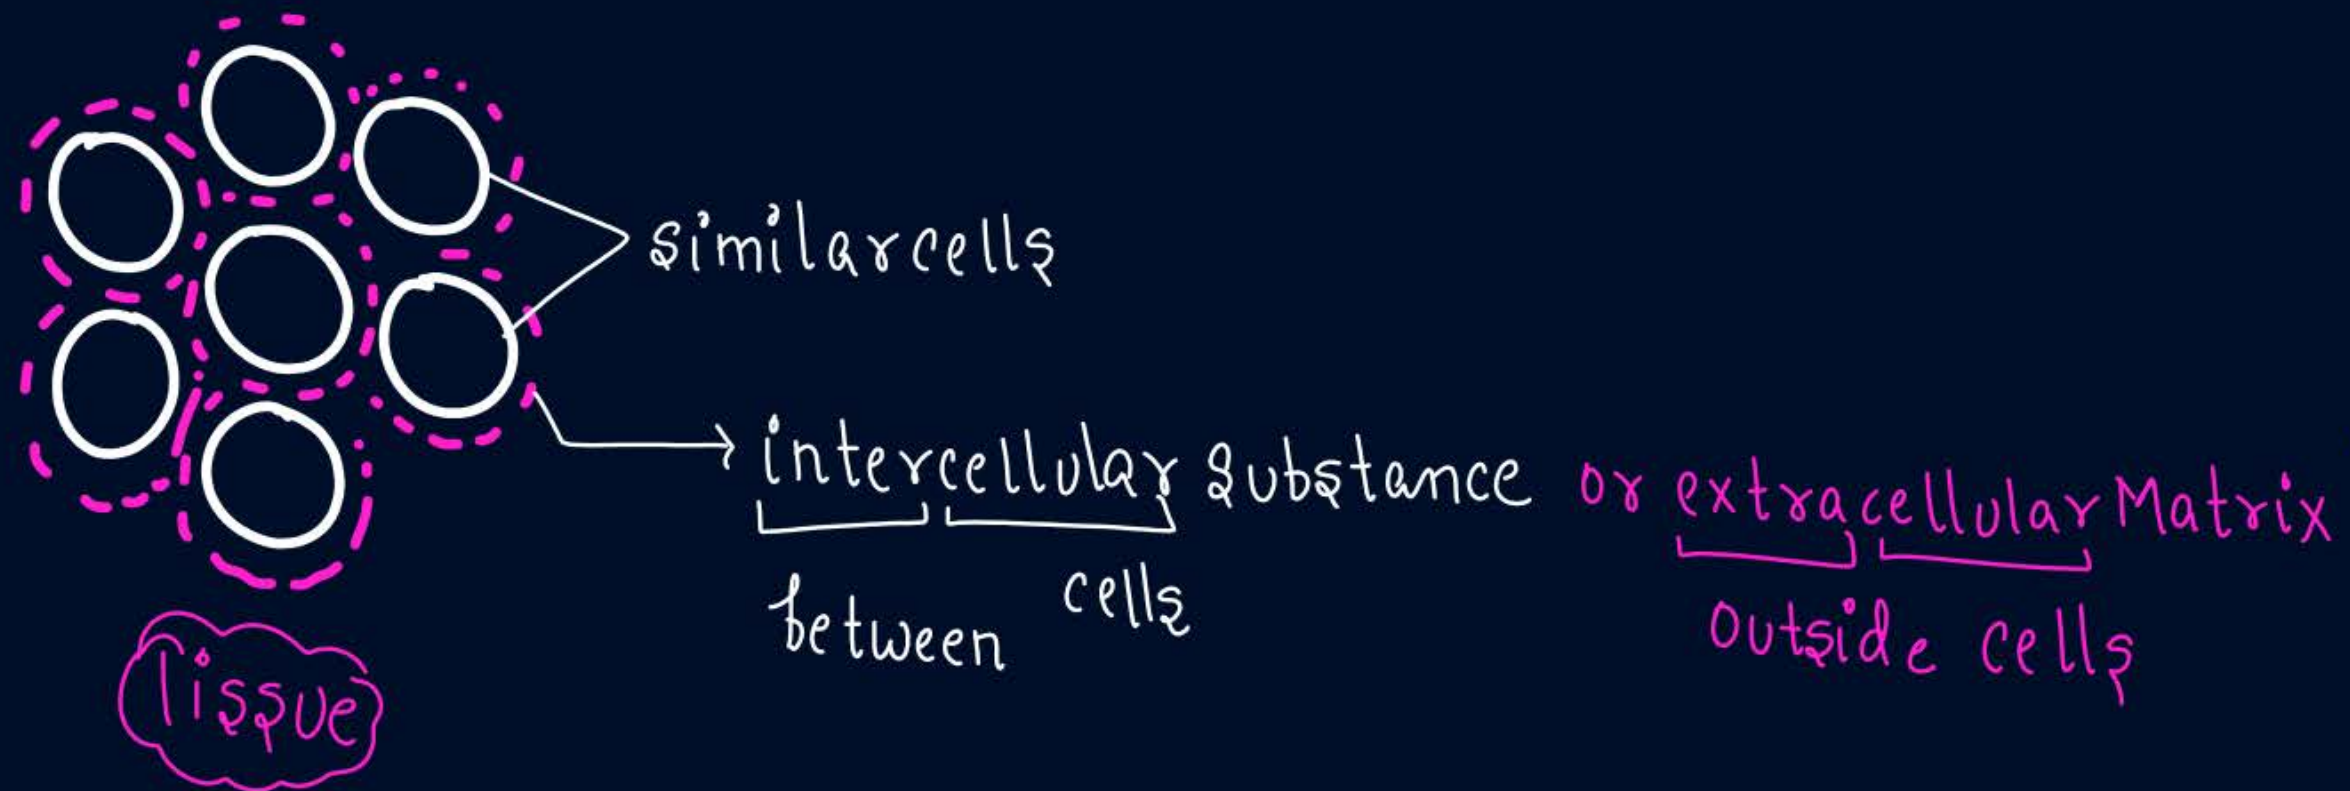 similar cells
intercellular substance or extracellular Matrix
between cells
outside cells
Tissue